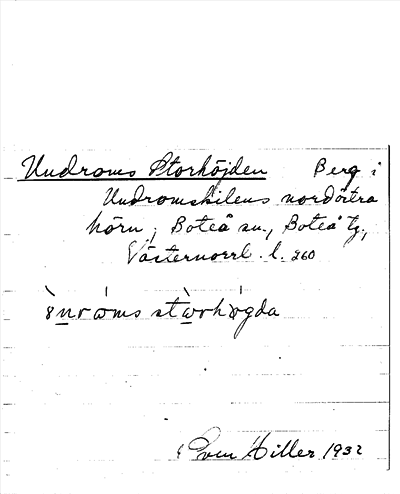 Undroms Storhöjden Berg i
Undromskilens nordöstra
hörn, Boteå sn., Boteå tg,
Västernorrl. l. 260
Sven Hiller 1932